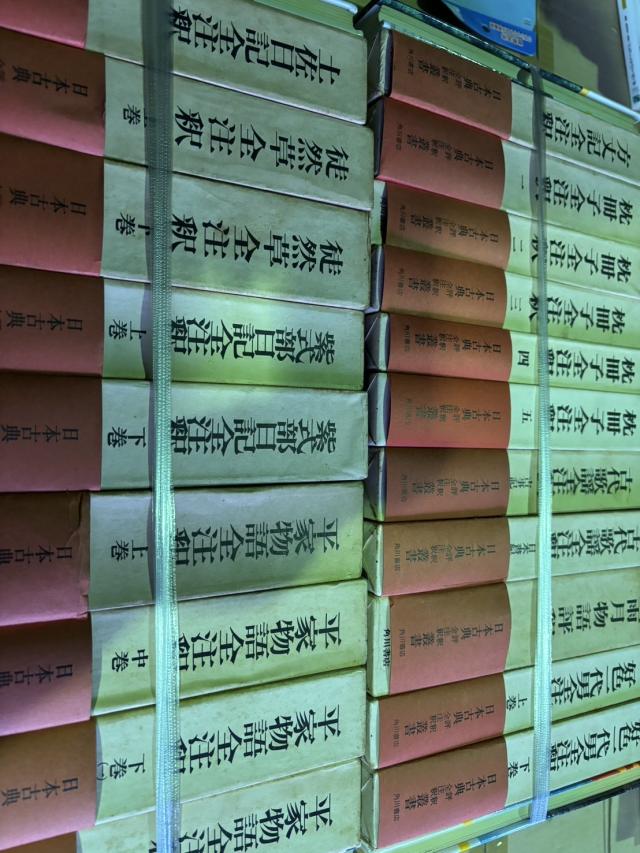 土佐日記全注釈
日本古典
徒然草全注釈 上巻
日本古典
徒然草全注釈 下巻
日本古典
紫式部日記全注釈 上巻
日本古典
紫式部日記全注釈 下巻
日本古典
平家物語全注釈 上巻
日本古典
平家物語全注釈 中巻
日本古典
平家物語全注釈 下巻(一)
日本古典
平家物語全注
方丈記全注釈
日本古典評釈全注釈叢書
角川書店
枕冊子全注釈 一
日本古典評釈全注釈叢書
角川書店
枕冊子全注釈 二
日本古典評釈全注釈叢書
角川書店
枕冊子全注釈 三
日本古典評釈全注釈叢書
角川書店
枕冊子全注釈 四
日本古典評釈全注釈叢書
角川書店
枕冊子全注釈 五
日本古典評釈全注釈叢書
角川書店
古代歌謡全注釈 古事記
日本古典評釈全注釈叢書
角川書店
古代歌謡全注釈 日本書紀
日本古典評釈全注釈叢書
角川書店
雨月物語評釈
日本古典評釈全注釈叢書
角川書店
好色一代男全注釈 上巻
日本古典評釈全注釈叢書
角川書店
好色一代男全注釈 下巻
日本古典評釈全注釈叢書
角川書店